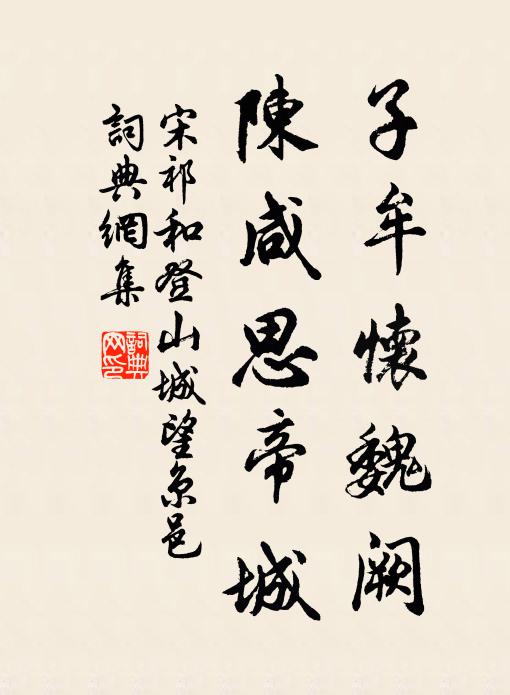 子牟懷魏闕
陳咸思帝城
宋祁和登山城望京邑
詞典網集
詞典网印